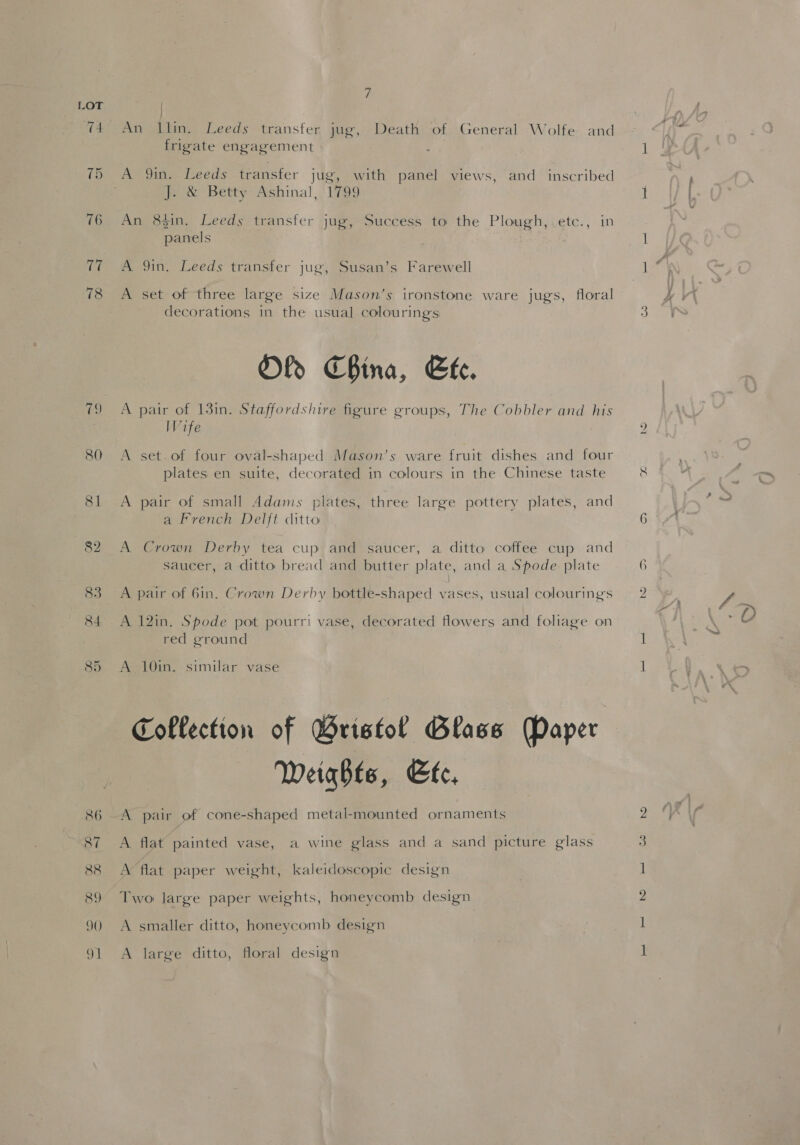 7
LOT
74 An 11in. Leeds transfer jug, Death of General Wolfe and
frigate engagement 1
75 A 9in. Leeds transfer jug, with panel views, and inscribed
J. & Betty Ashinal, 1799 1
76 An 8½in. Leeds transfer jug, Success to the Plough, etc., in
panels 1
77 A 9in. Leeds transfer jug, Susan's Farewell 1
78 A set of three large size Mason's ironstone ware jugs, floral
decorations in the usual colourings 3
Old China, Etc.
79 A pair of 13in. Staffordshire figure groups, The Cobbler and his
Wife 2
80 A set of four oval-shaped Mason's ware fruit dishes and four
plates en suite, decorated in colours in the Chinese taste 8
81 A pair of small Adams plates, three large pottery plates, and
a French Delft ditto 6
82 A Crown Derby tea cup and saucer, a ditto coffee cup and
saucer, a ditto bread and butter plate, and a Spode plate 6
83 A pair of 6in. Crown Derby bottle-shaped vases, usual colourings 2
84 A 12in. Spode pot pourri vase, decorated flowers and foliage on
red ground 1
85 A 10in. similar vase 1
Collection of Bristol Glass Paper
Weights, Etc.
86 A pair of cone-shaped metal-mounted ornaments 2
87 A flat painted vase, a wine glass and a sand picture glass 3
88 A flat paper weight, kaleidoscopic design 1
89 Two large paper weights, honeycomb design 2
90 A smaller ditto, honeycomb design 1
91 A large ditto, floral design 1